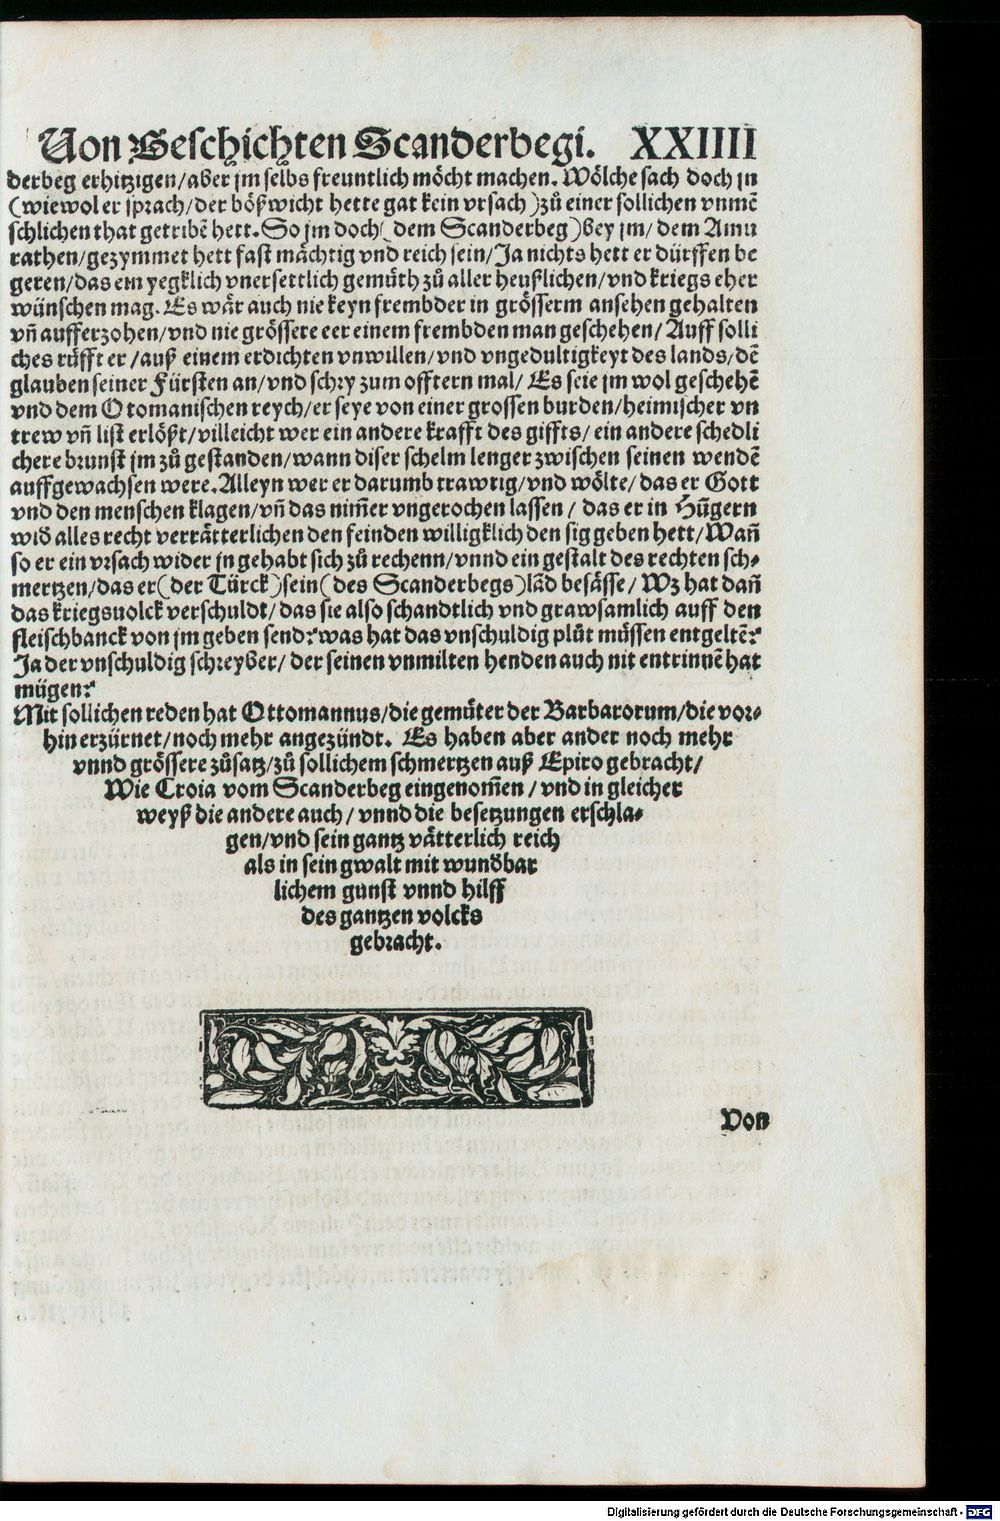 Von Geschichten Scanderbegi. XXIIII
derbeg erhitzigen/aber jm selbs freuntlich möcht machen. Wölche sach doch jn
(wiewol er sprach/der bößwicht hette gat kein vrsach)zů einer sollichen vnmē
schlichen that getribē hett. So jm doch( dem Scanderbeg)bey jm/ dem Amu
rathen/gezymmet hett fast mächtig vnd reich sein/Ja nichts hett er dürffen be
geren/das ein yegklich vnersettlich gemüth zů aller heußlichen/vnd kriegs eher
wünschen mag. Es wär auch nie keyn frembder in grösserm ansehen gehalten
vñ aufferzohen/vnd nie grössere eer einem frembden man geschehen/ Auff solli
ches růfft er /auß einem erdichten vnwillen/vnd vngedultigkeyt des lands/dē
glauben seiner Fürsten an/vnd schry zum offtern mal/ Es seie jm wol geschehē
vnd dem Otomanischen reych/er seye von einer grossen burden/heimischer vn
trew vñ list erlößt/villeicht wer ein andere krafft des giffts/ ein andere schedli
chere brunst jm zů gestanden/wann diser schelm lenger zwischen seinen wendē
auffgewachsen were. Alleyn wer er darumb trawrig/vnd wölte/ das er Gott
vnd den menschen klagen/vñ das nim̄er vngerochen lassen / das er in Hūgern
wid alles recht verrätterlichen den feinden willigklich den sig geben hett/Wañ
so er ein vrsach wider jn gehabt sich zů rechenn/vnnd ein gestalt des rechten sch⸗
mertzen/das er(der Türck)sein(des Scanderbegs)lād besässe/ Wz hat dañ
das kriegsuolck verschuldt/das sie also schandtlich vnd grawsamlich auff den
fleischbanck von jm geben send? was hat das vnschuldig plůt müssen entgeltē?
Ja der vnschuldig schreyber/ der seinen vnmilten henden auch nit entrinnē hat
mügen?
Mit sollichen reden hat Ottomannus/die gemüter der Barbarorum/die vor⸗
hin erzürnet/noch mehr angezündt. Es haben aber ander noch mehr
vnnd grössere zůsatz/zů sollichem schmertzen auß Epiro gebracht/
Wie Croia vom Scanderbeg eingenom̄en /vnd in gleicher
weyß die andere auch/ vnnd die besetzungen erschla⸗
gen/vnd sein gantz vätterlich reich
als in sein gwalt mit wundbar
lichem gunst vnnd hilff
des gantzen volcks
gebracht.
Von
Digitalisierung gefördert durch die Deutsche Forschungsgemeinschaft - DFG